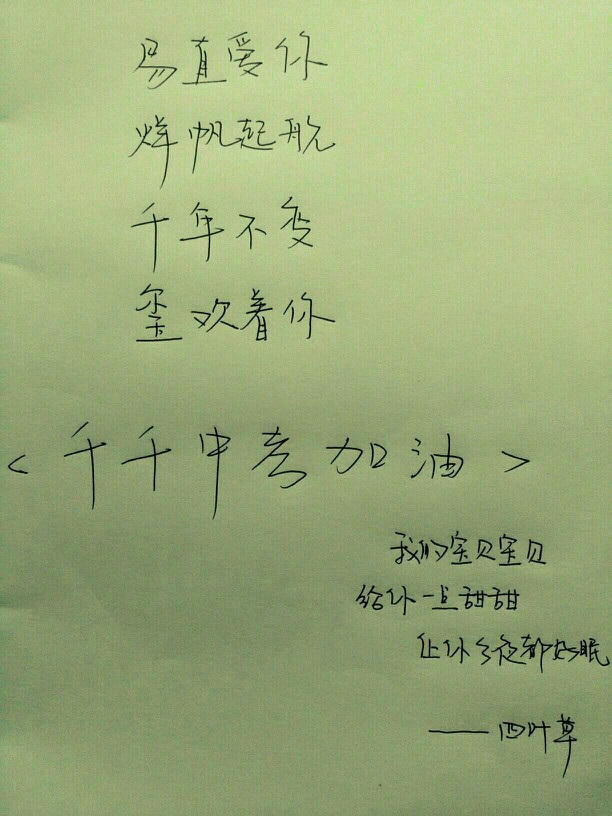 易直爱你
烊帆起航
千年不变
玺欢着你
<千千中考加油>
我的宝贝宝贝
给你一点甜甜
让你今夜都好眠
——四叶草